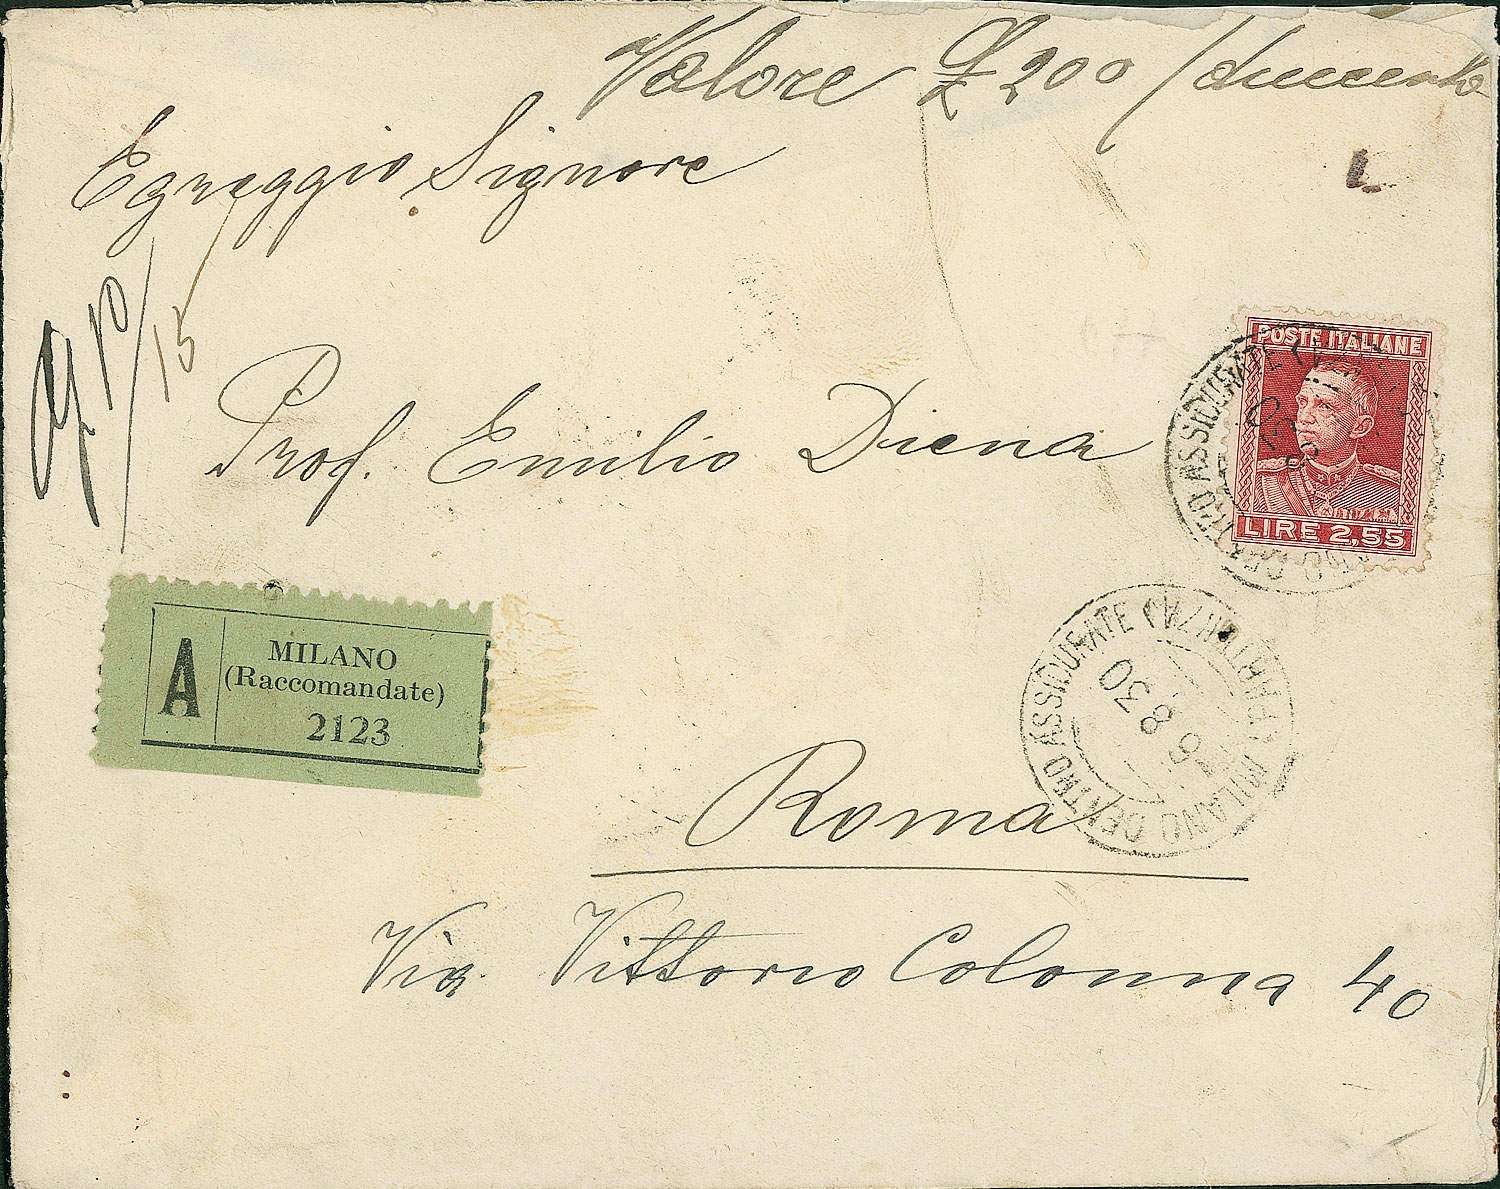 Valore £ 200 / duecento
Egreggio Signore
g. 10/15
Prof. Emilio Diena
POSTE ITALIANE
LIRE 2,55
A
MILANO
(Raccomandate)
2123
MILANO CENTRO ASSICURATE (PARTENZA)
8 30
Roma
Via Vittorio Colonna 40